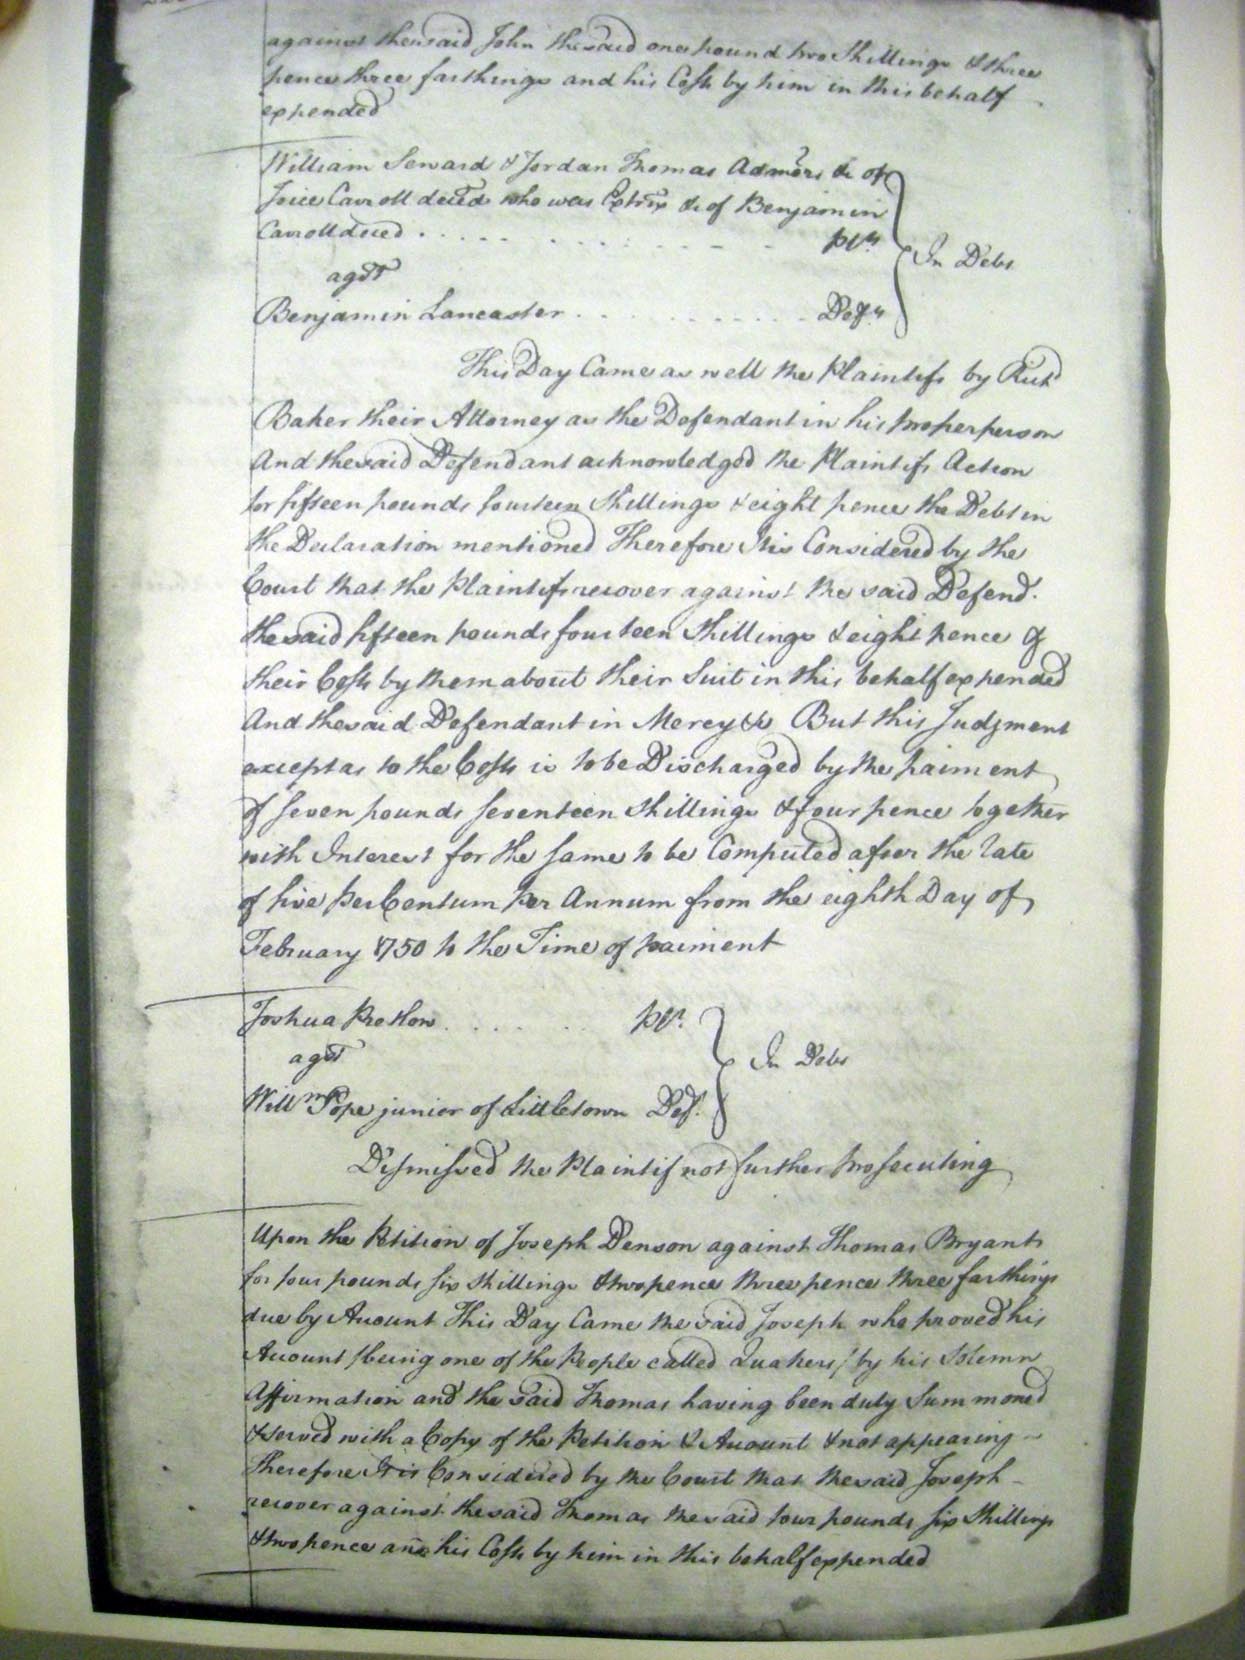 against the said John the said one pound two Shillings & three
pence three farthings and his Costs by him in this behalf
expended
William Seward & Jordan Thomas Admors &c of
Joice Carroll deced who was Extrix &c of Benjamin
Carroll deced . . . . . . . . . . . Plts
agst
In Debt
Benjamin Lancaster . . . . . . . . . . . Deft
This Day Came as well the Plaintifs by Richd
Baker their Attorney as the Defendant in his proper person
And the said Defendant acknowledged the Plaintifs Action
for fifteen pounds fourteen Shillings & eight pence the Debt in
the Declaration mentioned Therefore Itis Considered by the
Court that the Plaintifs recover against the said Defend.
the said fifteen pounds fourteen Shillings & eight pence &
their Costs by them about their Suit in this behalf expended
And the said Defendant in Mercy &c But this Judgment
except as to the Costs is to be Discharged by the paiment
of seven pounds seventeen Shillings & four pence together
with Interest for the same to be Computed after the rate
of five Per Centum Per Annum from the eighth Day of
February 1750 to the Time of paiment
Joshua Pretlow . . . . . . Plt.
agst
In Debt
Willm Pope junior of Littletown Deft.
Dismissed the Plaintif not further prosecuting
Upon the Petition of Joseph Denson against Thomas Bryant
for four pounds six Shillings & two pence three pence three farthings
due by Account This Day Came the said Joseph who proved his
Account /being one of the People called Quakers/ by his Solemn
Affirmation and the said Thomas having been duly Summoned
& served with a Copy of the Petition & Account & not appearing
Therefore It is Considered by the Court that the said Joseph
recover against the said Thomas the said four pounds six Shillings
& two pence and his Costs by him in this behalf expended